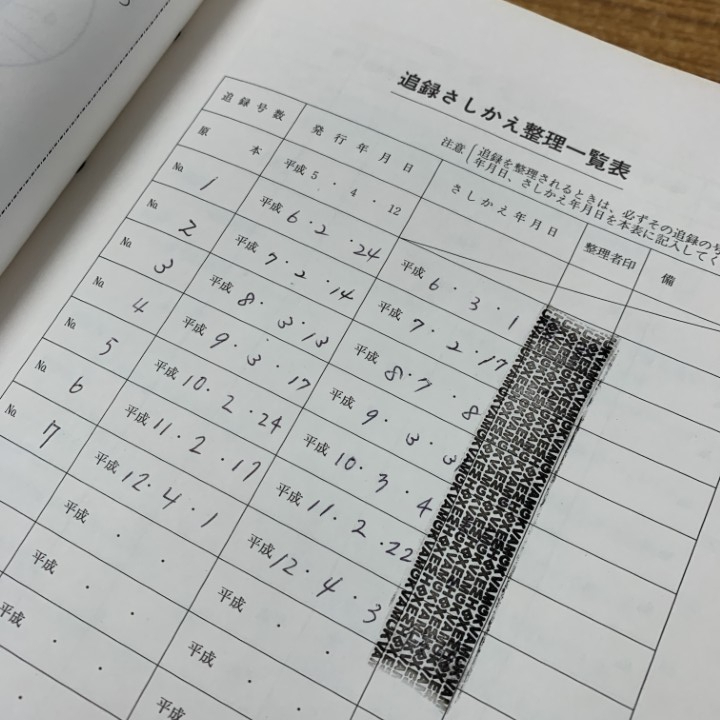 追録さしかえ整理一覧表
注意 追録を整理されるときは、必ずその追録の
年月日、さしかえ年月日を本表に記入してく
追録号数 発行年月日 さしかえ年月日 整理者印 備
原本 平成5・4・12
№1 平成6・2・24 平成6・3・1
№2 平成7・2・14 平成7・2・17
№3 平成8・3・13 平成8・7・8
№4 平成9・3・17 平成9・3・3
№5 平成10・2・24 平成10・3・4
№6 平成11・2・17 平成11・2・22
№7 平成12・4・1 平成12・4・3
平成 ・ ・ 平成 ・ ・
平成 ・ ・ 平成 ・ ・
平成 ・ ・ 平成